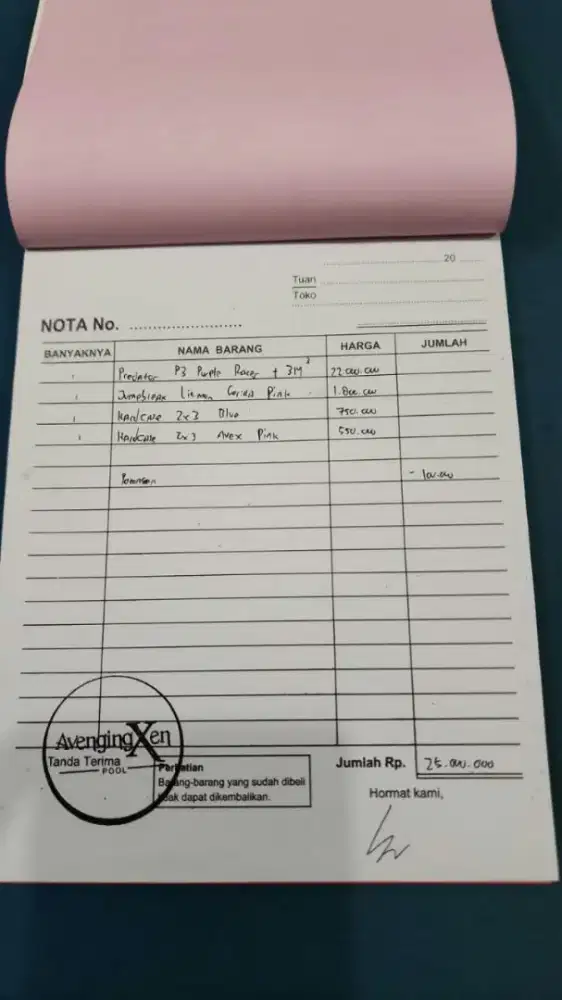 20
Tuan
Toko
NOTA No.
BANYAKNYA NAMA BARANG HARGA JUMLAH
1 Predator P3 Purple Racer + 3M 22.000.000
1 Pink 1.800.000
1 Hardcase 2x3 Blue 750.000
1 Hardcase 2x3 Avex Pink 550.000
- 100.000
AvengingXen
POOL
Tanda Terima
Perhatian
Barang-barang yang sudah dibeli
tidak dapat dikembalikan.
Jumlah Rp. 25.000.000
Hormat kami,